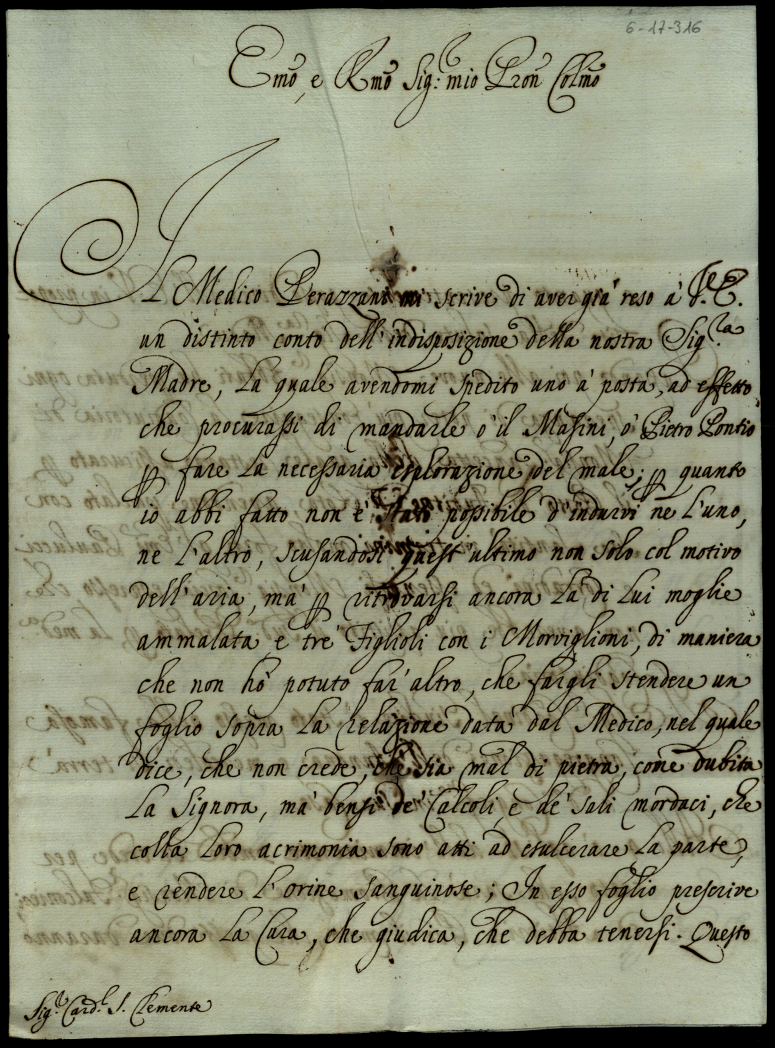 6-17-316
Emo, e Rmo Sig:r mio Pron Colmo
IL Medico Perazzani mi scrive di aver già reso à V.E.
un distinto conto dell'indisposizione della nostra Sig.ra
Madre, La quale avendomi spedito uno à posta, ad effetto
che procurassi di mandarle ò il Masini, ò Pietro Pontio
p fare La necessaria esplorazione del male; p quanto
io abbi fatto non è stato possibile d'indurvi nè L'uno,
ne L'altro, scusandosi quest'ultimo non solo col motivo
dell'aria, mà p ritrovarsi ancora La di Lui moglie
ammalata e trè Figlioli con i Morviglioni, di maniera
che non hò potuto far altro, che fargli stendere un
foglio sopra La relazione data dal Medico, nel quale
dice, che non crede, che sia mal di pietra, come dubita
La Signora, mà bensì de' Calcoli, e de' sali mordaci, che
colla Loro acrimonia sono atti ad esulcerare La parte,
e rendere L'orine sanguinose; In esso foglio prescrive
ancora La Cura, che giudica, che debba tenersi. Questo
Sig.r Card.l S. Clemente